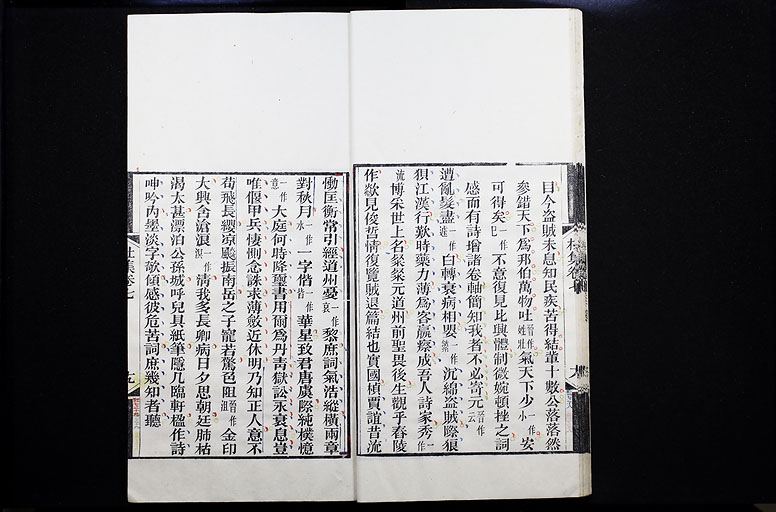 目今盜賊未息知民疾苦得結輩十數公落落然
參錯天下爲邦伯萬物吐晉作姓壯氣天下少一作小安
可得矣一作已不意復見比興體制微婉頓挫之詞
感而有詩增諸卷軸簡知我者不必寄元晉作云
遭亂髮盡一作遽白轉衰病相嬰一作縈沉綿盜賊際狼
狽江漢行歎時藥力薄爲客羸瘵成吾人詩家秀一作
流博采世上名粲粲元道州前聖畏後生觀乎舂陵
作歘見俊哲情復覽賊退篇結也實國楨賈誼昔流
慟匡衡常引經道州憂一作哀黎庶詞氣浩縱橫兩章
對秋月一作水一字偕一作皆華星致君唐虞際純樸憶
一作意大庭何時降璽書用爾爲丹青獄訟永衰息豈
唯偃甲兵悽惻念誅求薄斂近休明乃知正人意不
苟飛長纓凉飈振南岳之子寵若驚色阻晉作沮金印
大興含滄浪一作溟清我多長卿病日夕思朝廷肺枯
渴太甚漂泊公孫城呼兒具紙筆隱几臨軒楹作詩
呻吟内墨淡字欹傾感彼危苦詞庶幾知者聽
杜集卷七
五